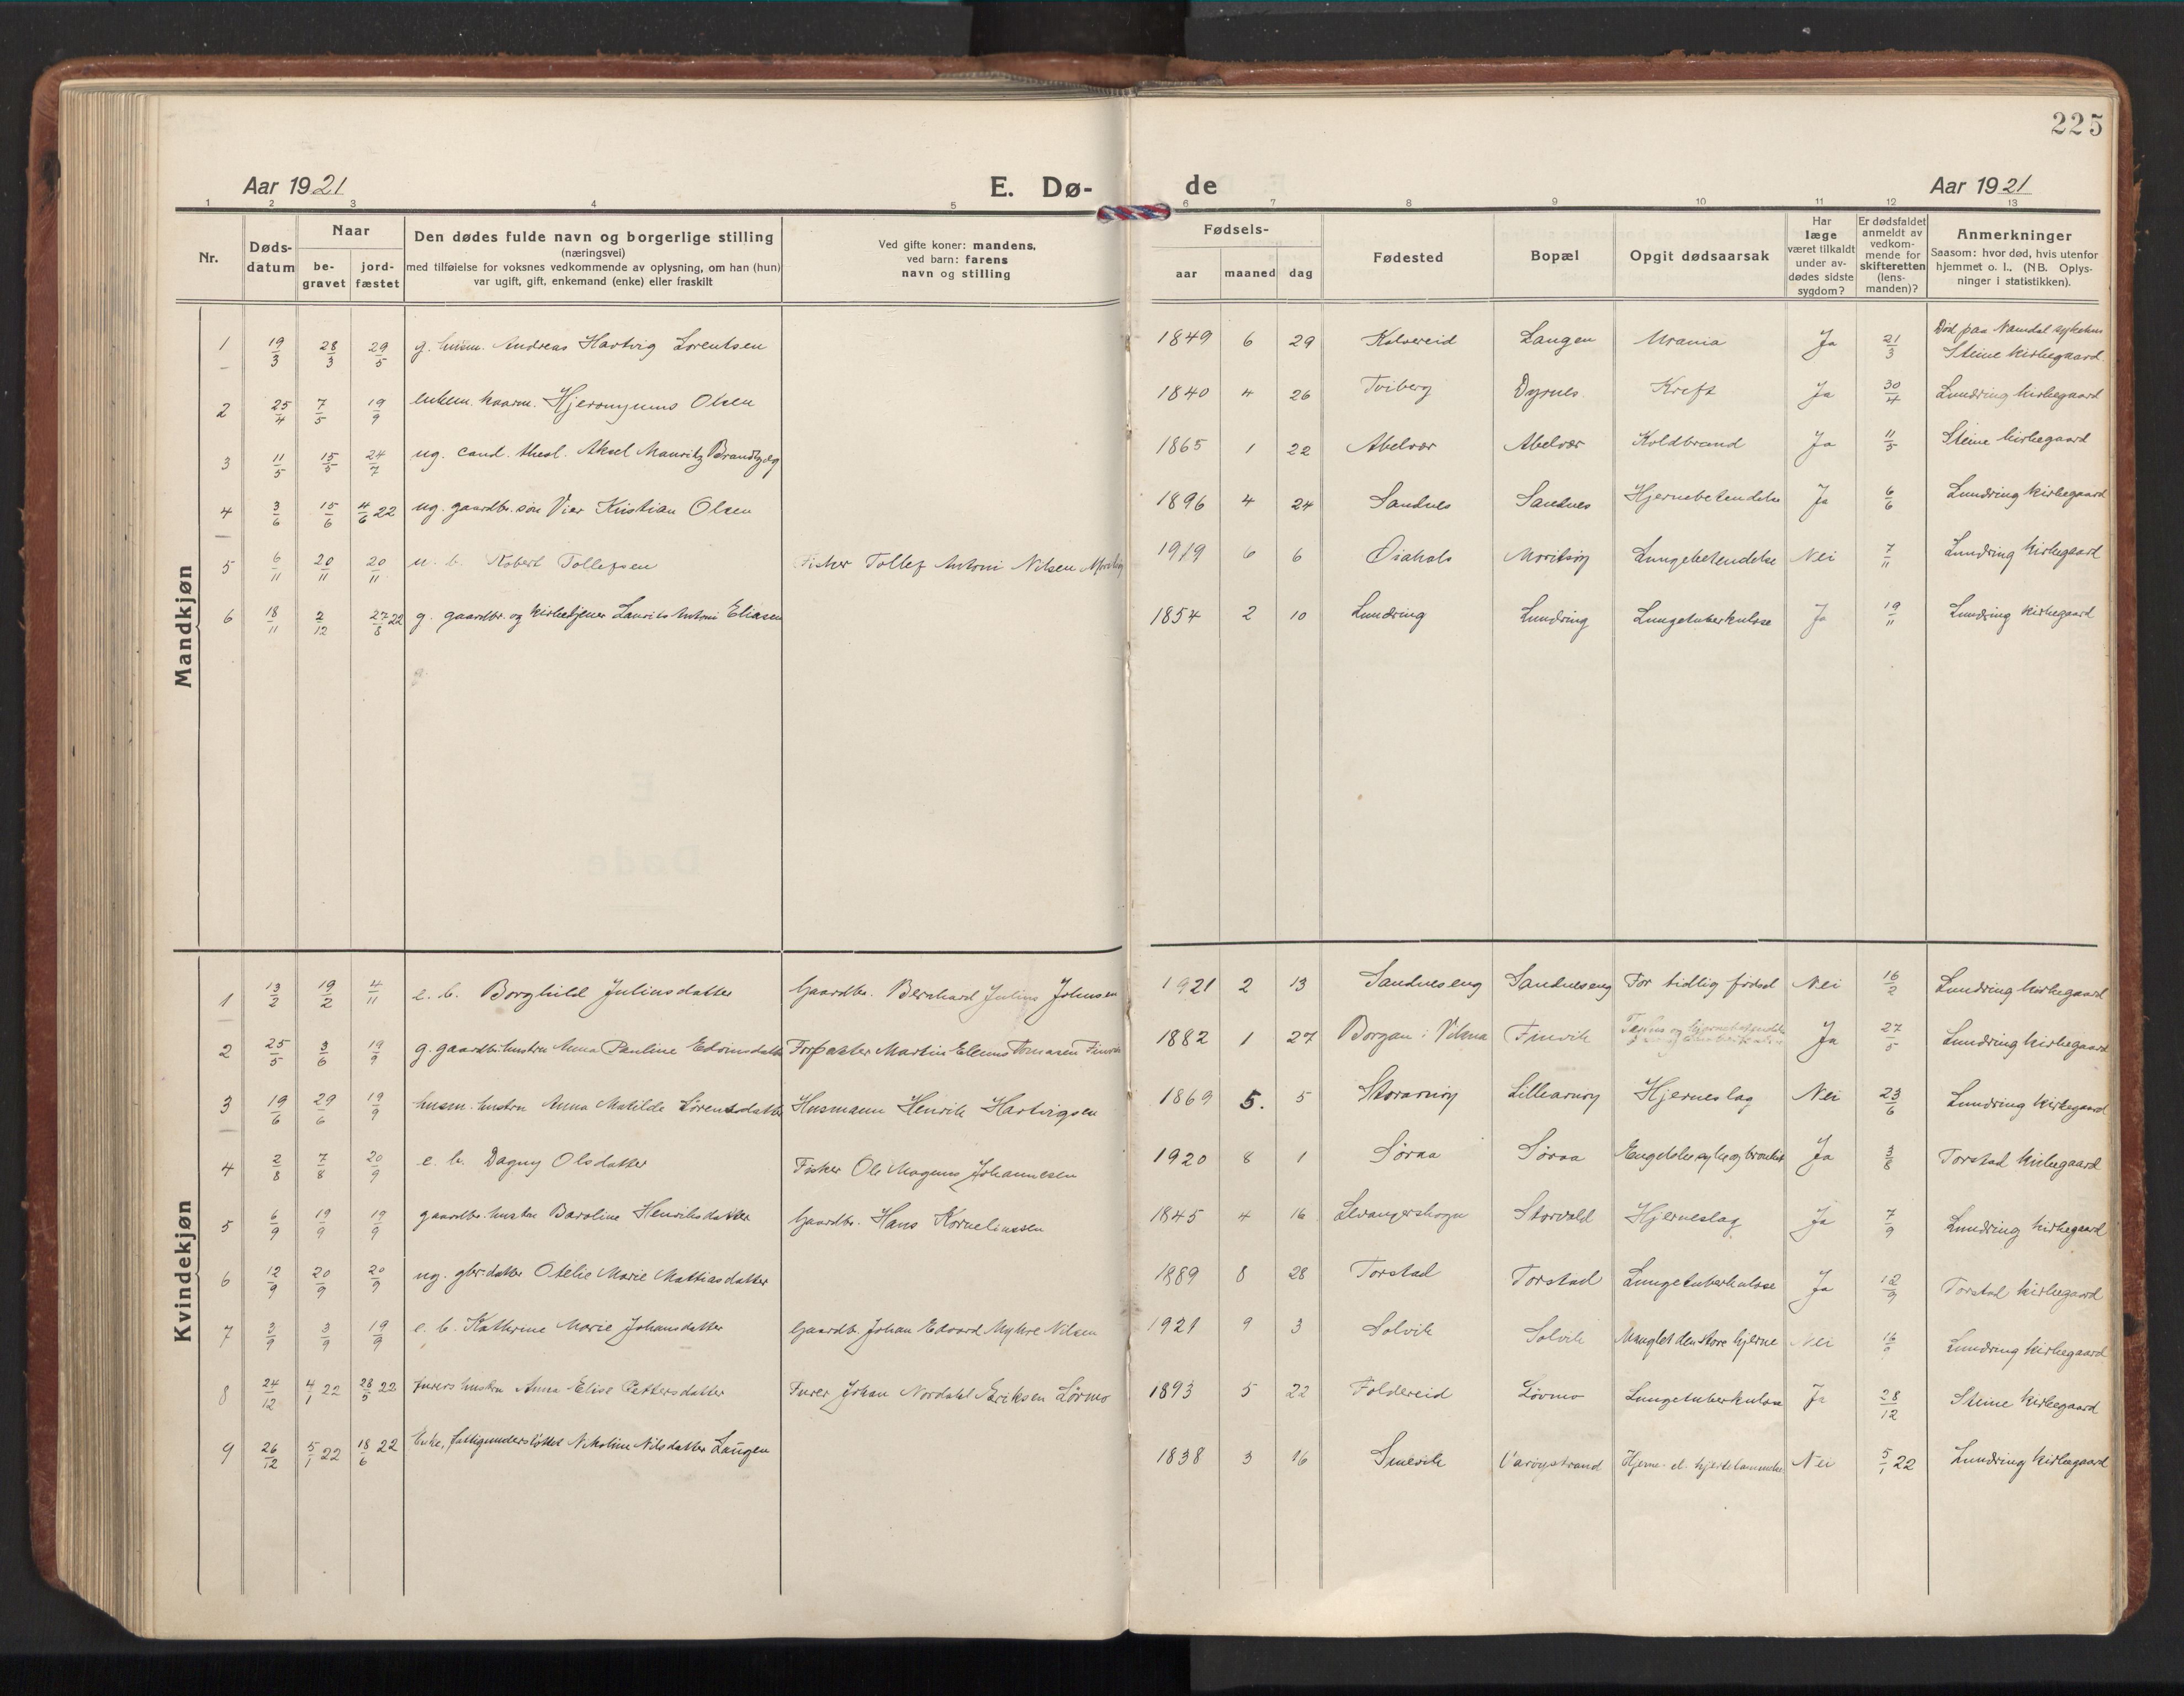 225
Aar 1921 E. Dø- de Aar 1921
1 2 3 4 5 6 7 8 9 10 11 12 13
Nr. Døds-datum Naar begravet jordfæstet Den dødes fulde navn og borgerlige stilling (næringsvei) med tilføielse for voksnes vedkommende av oplysning, om han (hun) var ugift, gift, enkemand (enke) eller fraskilt Ved gifte koner: mandens, ved barn: farens navn og stilling Fødsels- aar maaned dag Fødested Bopæl Opgit dødsaarsak Har læge været tilkaldt under avdødes sidste sygdom? Er dødsfaldet anmeldt av vedkommende for skifteretten (lensmanden)? Anmerkninger Saasom: hvor død, hvis utenfor hjemmet o. l., (NB. Oplysninger i statistikken).
Mandkjøn
1 19/3 28/3 29/5 g. husm. Andreas Hartvig Lorentsen 1849 6 29 Kolvereid Laugen Urania Ja 21/3 Død paa Namdal sykehus Steine kirkegaard.
2 25/4 7/5 19/9 enkem. kaarm. Hjeronymus Olsen 1840 4 26 Tviberg Dyrnes. Kreft Ja 30/4 Lundring kirkegaard
3 11/5 15/5 24/7 ug. cand. theol. Aksel Mauritz Brandtzæg 1865 1 22 Abelvær Abelvær Koldbrand Ja 11/5 Steine kirkegaard
4 3/6 15/6 4/6 22 ug. gaardbr. søn Vier Kristian Olsen 1896 4 24 Sandnes Sandnes Hjernebetendelse Ja 6/6 Lundring kirkegaard
5 6/11 20/11 20/11 u. b. Robert Tollefsen Fisker Tollef Antoni Nilsen 1919 6 6 Øiahals Moritsøy Lungebetendelse Nei 7/11 Lundring kirkegaard
6 18/11 2/12 27/8 22 g. gaardbr. og kirketjener Laurits Antoni Eliasen 1854 2 10 Lundring Lundring Lungetuberkulose Ja 19/11 Lundring kirkegaard
Kvindekjøn
1 13/2 19/2 4/11 e. b. Borghild Juliusdatter Gaardbr. Bernhard Julius Johnsen 1921 2 13 Sandneseng Sandneseng For tidlig fødsel Nei 16/2 Lundring kirkegaard
2 25/5 3/6 19/9 g. gaardbr. hustru Anna Pauline Edvinsdatter Forpakter Martin Elenus Tomasen 1882 1 27 Borgan i Vikna Finvik Ja 27/5 Lundring kirkegaard
3 19/6 29/6 19/9 husm. hustru Anna Matilde Lorentsdatter Husmann Henrik Hartvigsen 1869 5. 5 Storarnøy Lillearnøy Hjerneslag Nei 23/6 Lundring kirkegaard
4 2/8 7/8 20/9 e. b. Dagny Olsdatter Fisker Ole Magnus Johannesen 1920 8 1 Søraa Søraa Engelskesyke og bronkit Ja 3/8 Torstad kirkegaard
5 6/9 19/9 19/9 gaardbr. hustru Baroline Henriksdatter Gaardbr. Hans Korneliussen 1845 4 16 Levangerskogn Storvold Hjerneslag Ja 7/9 Lundring kirkegaard
6 12/9 20/9 20/9 ug. gbr. datter Otelie Marie Mattiasdatter 1889 8 28 Torstad Torstad Lungetuberkulose Ja 12/9 Torstad kirkegaard
7 3/9 3/9 19/9 e. b. Kathrine Marie Johansdatter Gaardb. Johan Edvard Myhre Nilsen 1921 9 3 Solvik Solvik Manglet den store hjerne Nei 16/9 Lundring kirkegaard
8 24/12 4/1 22 28/5 22 Furers hustru Anna Elise Pettersdatter Furer Johan Nordahl Eriksen Lövmo 1893 5 22 Foldereid Lövmo Lungetuberkulose Ja 28/12 Steine kirkegaard
9 26/12 5/1 22 18/6 22 Enke, fattigunderstøttet Nikoline Nilsdatter Laugen 1838 3 16 Smevik Varøystrand Hjerne- el. hjertelammelse Nei 5/1 22 Lundring kirkegaard